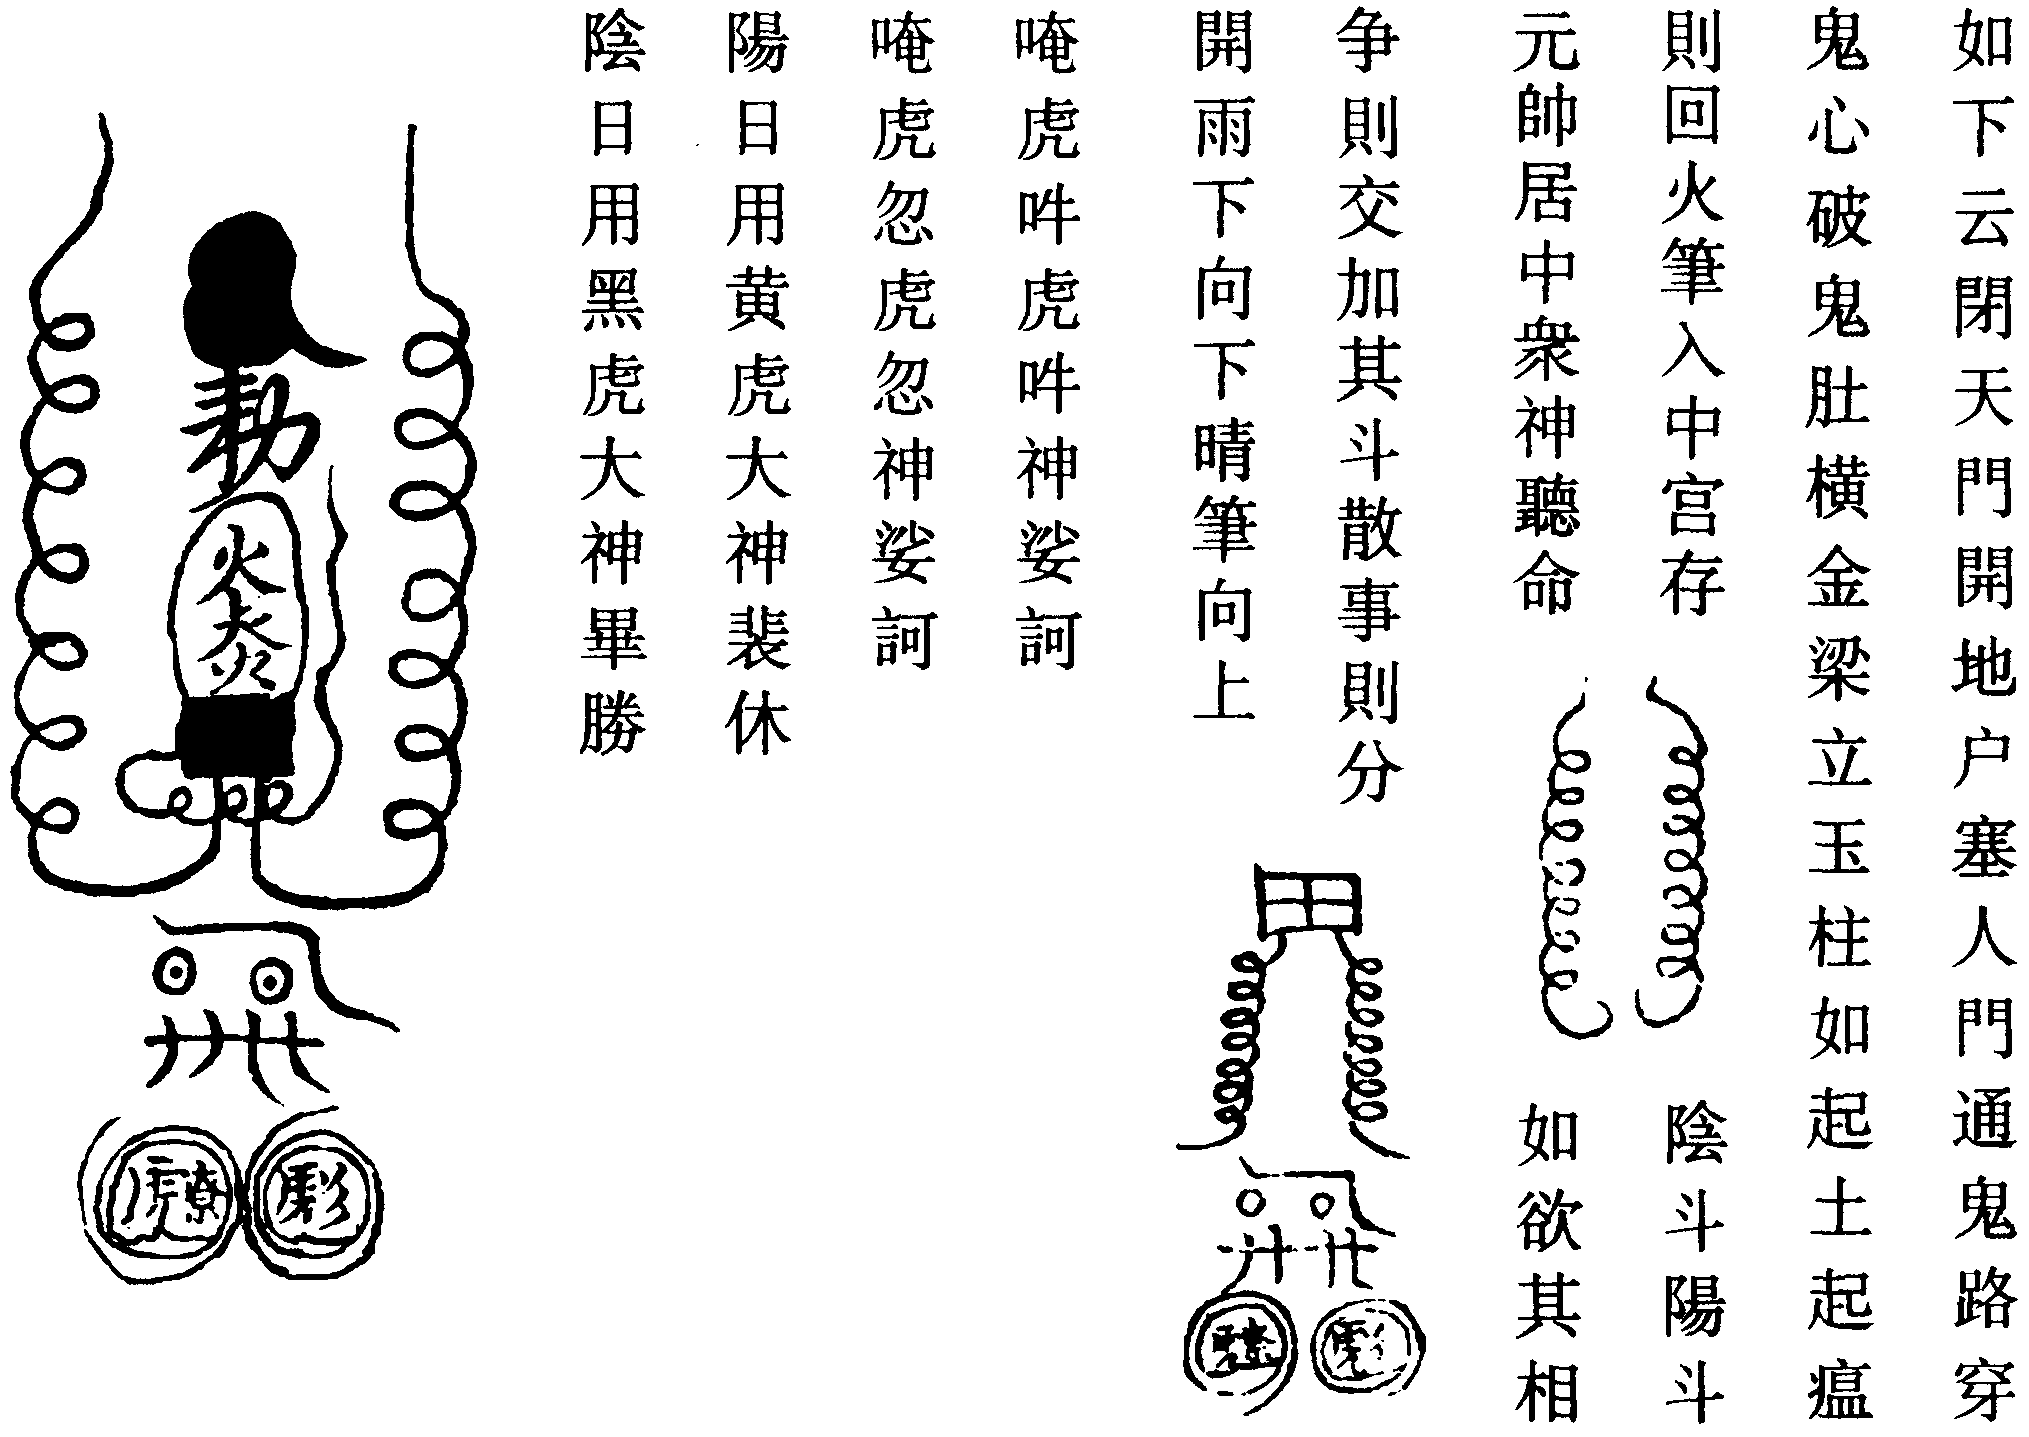 如下云閉天門開地户塞人門通鬼路穿
鬼心破鬼肚橫金梁立玉柱如起土起瘟
則回火筆入中宫存
陰斗陽斗
元帥居中衆神聽命
如欲其相
争則交加其斗散事則分
開雨下向下晴筆向上
唵虎吽虎吽神娑訶
唵虎忽虎忽神娑訶
陽日用黄虎大神裴休
陰日用黑虎大神畢勝
勑
火
炎